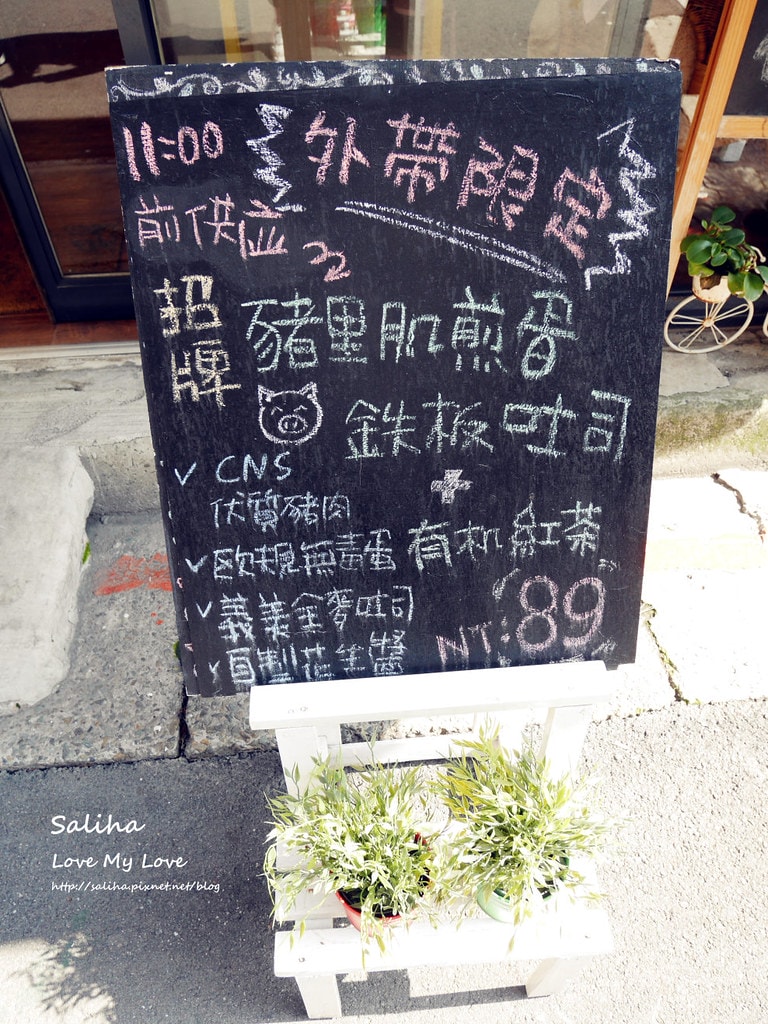 11:00
前供應
外帶限定
招牌
豬里肌煎蛋
鉄板吐司
+
有机紅茶
NT:89
✓ CNS
优質豬肉
✓ 欧規無毒蛋
✓ 義美全麥吐司
✓ 自製花生醬
Saliha
Love My Love
http://saliha.pixnet.net/blog